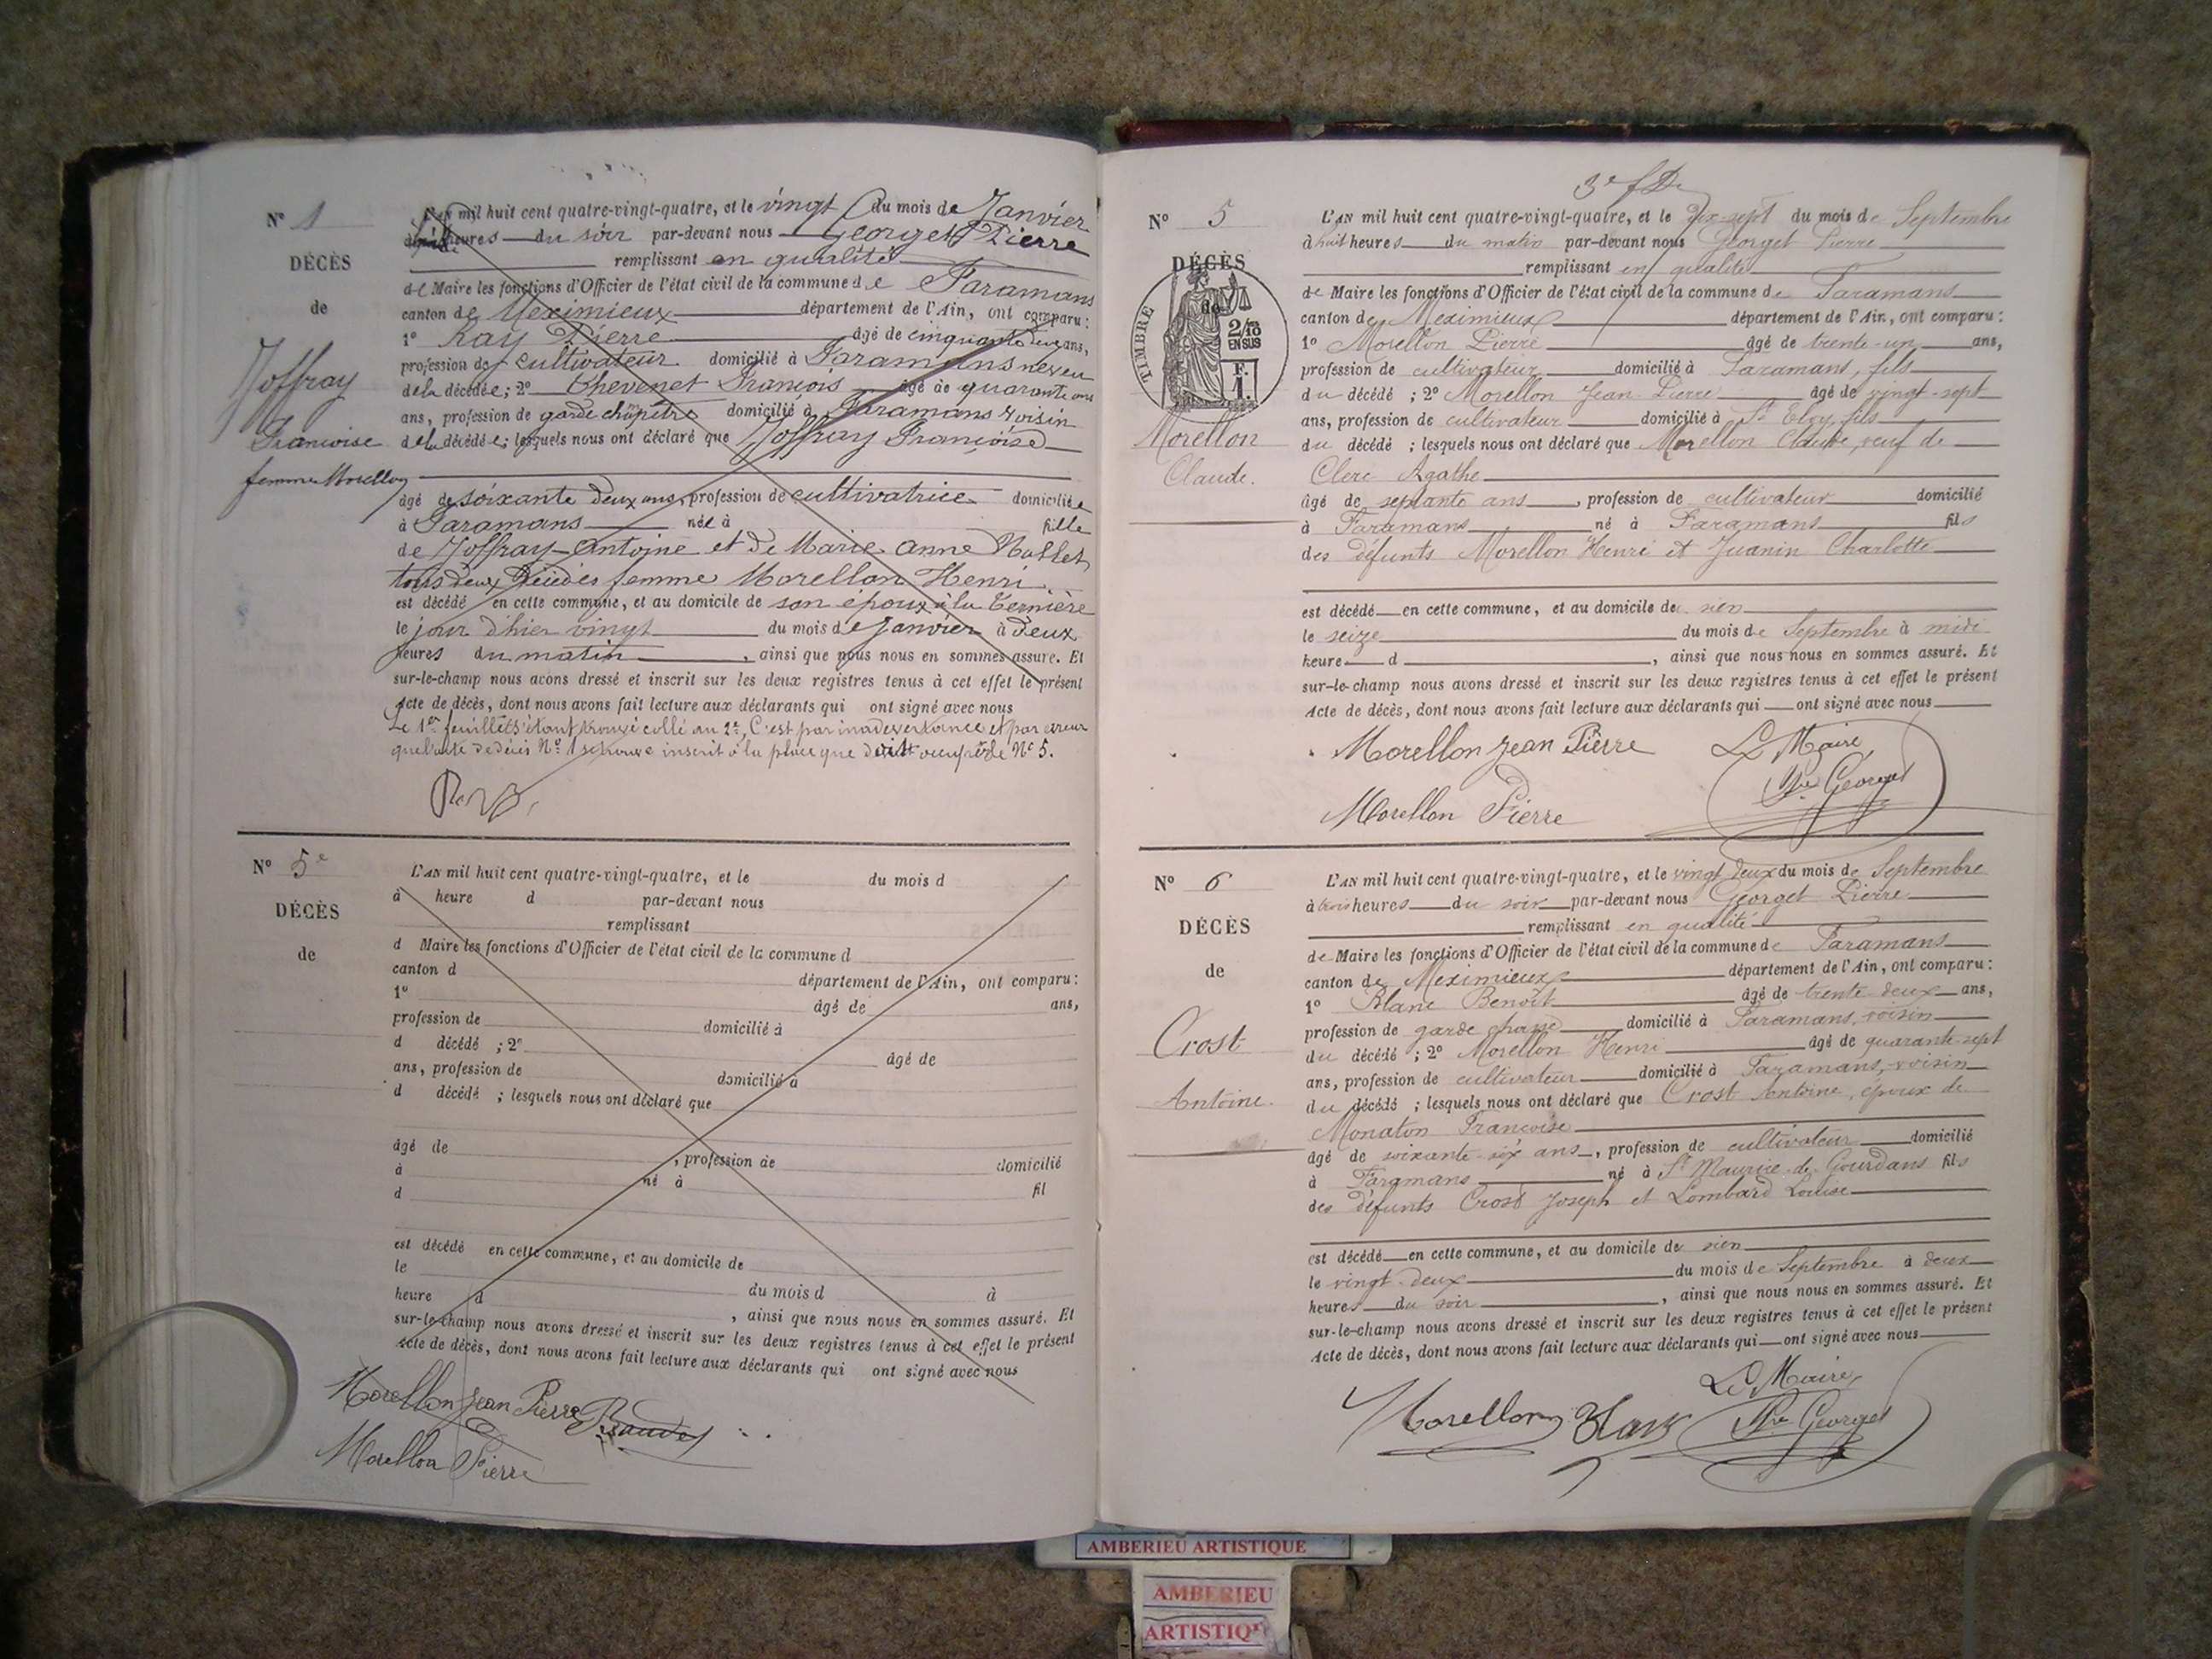 N° 1
DÉCÈS
de
Joffray
Francoise
femme Morellon
L'AN mil huit cent quatre-vingt-quatre, et le vingt du mois de Janvier
heures du soir par-devant nous Georget Pierre
remplissant en qualité
de Maire les fonctions d'Officier de l'état civil de la commune de Faramans
canton de Meximieux département de l'Ain, ont comparu :
1° Ray Pierre âgé de cinquante deux ans,
profession de cultivateur domicilié à Faramans neveu
de la décédée ; 2° Chevenet François âgé de quarante ans
ans, profession de garde champêtre domicilié à Faramans voisin
de la décédée ; lesquels nous ont déclaré que Joffray Françoise
âgé de soixante deux ans, profession de cultivatrice domiciliée
à Faramans née à fille
de Joffray Antoine et de Marie Anne
tous deux Décédés femme Morellon Henri
est décédé en cette commune, et au domicile de son époux à la
le jour d'hier vingt du mois de Janvier à deux
heures du matin, ainsi que nous nous en sommes assuré. Et
sur-le-champ nous avons dressé et inscrit sur les deux registres tenus à cet effet le présent
Acte de décès, dont nous avons fait lecture aux déclarants qui ont signé avec nous
Le 1er feuillet s'étant trouvé collé au 2e, C'est par inadvertance et par erreur
que l'acte de décès N° 1 se trouve inscrit à la place que devait occuper le N° 5.
N° 5e
DÉCÈS
de
L'AN mil huit cent quatre-vingt-quatre, et le du mois d
à heure d par-devant nous
remplissant
d Maire les fonctions d'Officier de l'état civil de la commune d
canton d département de l'Ain, ont comparu :
1° âgé de ans,
profession de domicilié à
d décédé ; 2° âgé de
ans, profession de domicilié à
d décédé ; lesquels nous ont déclaré que
âgé de , profession de domicilié
à né à
d fil
est décédé en cette commune, et au domicile de
le du mois d à
heure d , ainsi que nous nous en sommes assuré. Et
sur-le-champ nous avons dressé et inscrit sur les deux registres tenus à cet effet le présent
Acte de décès, dont nous avons fait lecture aux déclarants qui ont signé avec nous
Morellon Jean Pierre
Morellon Pierre
N° 5
DÉCÈS
de
TIMBRE
2/10
EN SUS
F.
1.
Morellon
Claude.
L'AN mil huit cent quatre-vingt-quatre, et le dix-sept du mois de Septembre
à huit heures du matin par-devant nous Georget Pierre
remplissant en qualité
de Maire les fonctions d'Officier de l'état civil de la commune de Faramans
canton de Meximieux département de l'Ain, ont comparu :
1° Morellon Pierre âgé de trente-un ans,
profession de cultivateur domicilié à Faramans, fils
du décédé ; 2° Morellon Jean-Pierre âgé de vingt-sept
ans, profession de cultivateur domicilié à St Eloy, fils
du décédé ; lesquels nous ont déclaré que Morellon Claude, veuf de
Clerc Agathe
âgé de septante ans, profession de cultivateur domicilié
à Faramans né à Faramans fils
des défunts Morellon Henri et Juanin Charlotte
est décédé en cette commune, et au domicile de sien
le seize du mois de Septembre à midi
heure d , ainsi que nous nous en sommes assuré. Et
sur-le-champ nous avons dressé et inscrit sur les deux registres tenus à cet effet le présent
Acte de décès, dont nous avons fait lecture aux déclarants qui ont signé avec nous
Morellon Jean Pierre Le Maire,
Morellon Pierre Pre Georget
N° 6
DÉCÈS
de
Crost
Antoine.
L'AN mil huit cent quatre-vingt-quatre, et le vingt deux du mois de Septembre
à trois heures du soir par-devant nous Georget Pierre
remplissant en qualité
de Maire les fonctions d'Officier de l'état civil de la commune de Faramans
canton de Meximieux département de l'Ain, ont comparu :
1° Blanc Benoit âgé de trente-deux ans,
profession de garde chasse domicilié à Faramans, voisin
du décédé ; 2° Morellon Henri âgé de quarante-sept
ans, profession de cultivateur domicilié à Faramans, voisin
du décédé ; lesquels nous ont déclaré que Crost Antoine, époux de
Monaton Françoise
âgé de soixante-six ans, profession de cultivateur domicilié
à Faramans né à St Maurice-de-Gourdans fils
des défunts Crost Joseph et Lombard Louise
est décédé en cette commune, et au domicile de sien
le vingt-deux du mois de Septembre à deux
heures du soir, ainsi que nous nous en sommes assuré. Et
sur-le-champ nous avons dressé et inscrit sur les deux registres tenus à cet effet le présent
Acte de décès, dont nous avons fait lecture aux déclarants qui ont signé avec nous
Le Maire,
Morellon Blanc Pre Georget
AMBERIEU ARTISTIQUE
AMBERIEU
ARTISTIQ